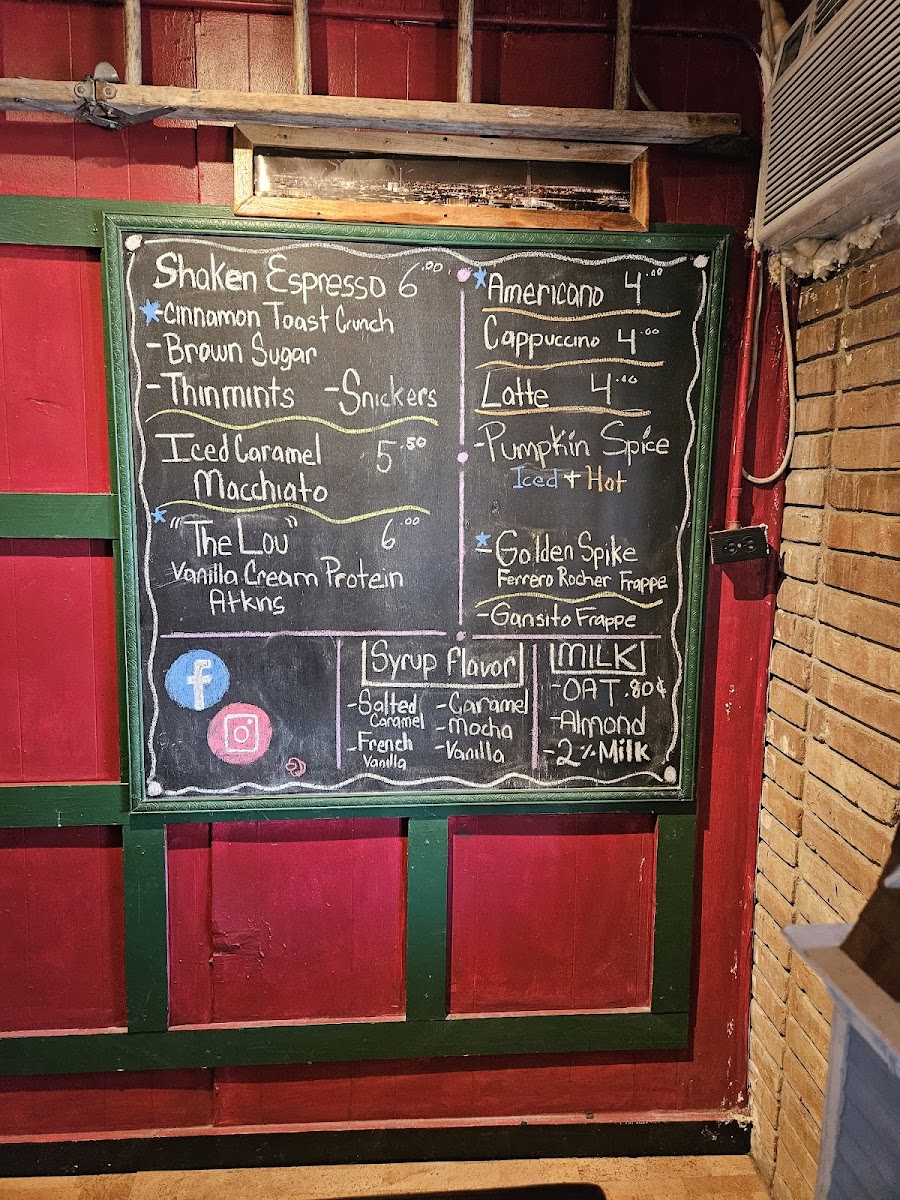 Shaken Espresso 6.00
-Cinnamon Toast Crunch
-Brown Sugar
-Thinmints -Snickers
Iced Caramel 5.50
Macchiato
"The Lou" 6.00
Vanilla Cream Protein
Atkins
Americano 4.00
Cappuccino 4.00
Latte 4.00
-Pumpkin Spice
Iced + Hot
-Golden Spike
Ferrero Rocher Frappe
-Gansito Frappe
f
Syrup Flavor
-Salted Caramel
-French Vanilla
-Caramel
-Mocha
-Vanilla
MILK
-OAT .80¢
-Almond
-2% Milk